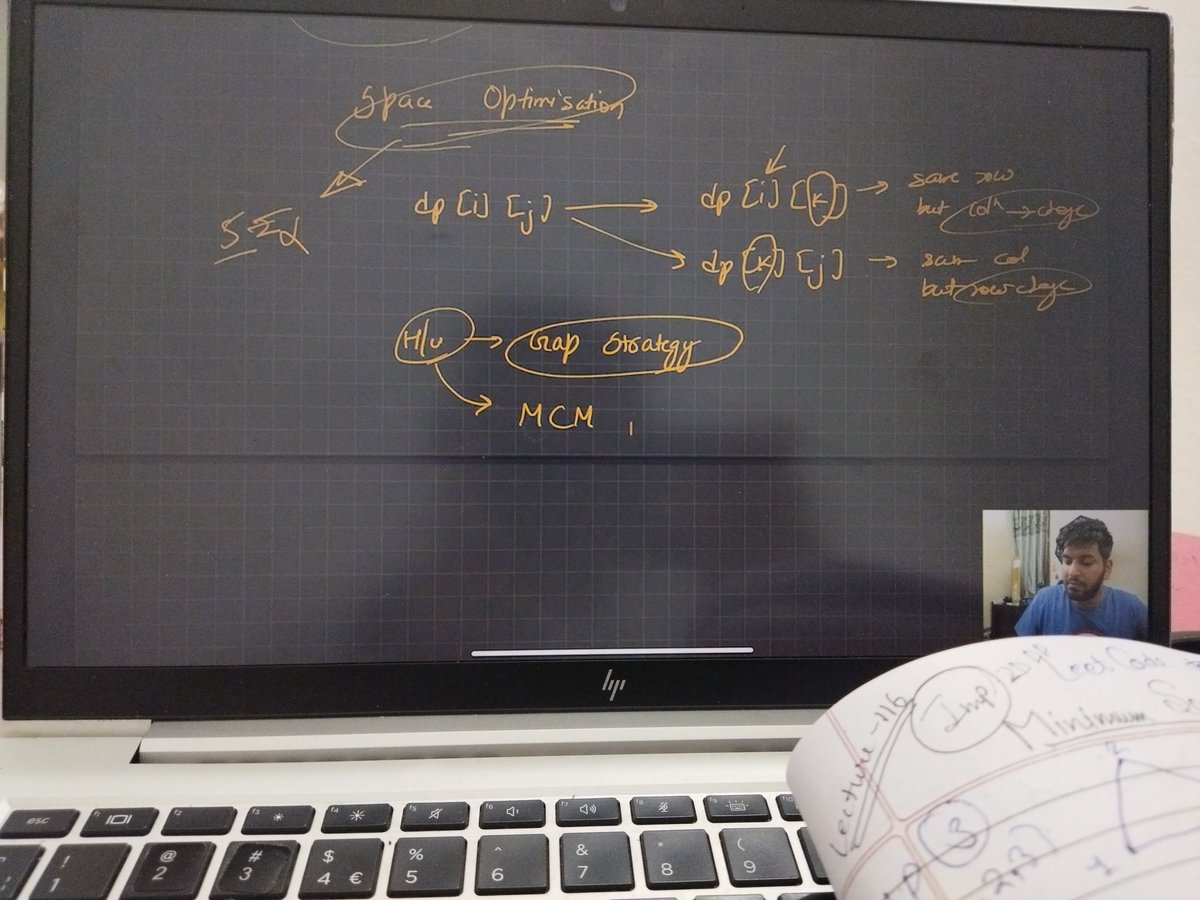 Space Optimisation
dp [i] [j] → dp [i] [k] → same row
but colⁿ → chge
→ dp [k] [j] → same col
but row chge
H/W → Gap Strategy
→ MCM
hp
Lecture-116
Imp
Leet Code
Minimum
3
2
1
esc
f1
f2
f3
f4
f5
f6
f7
f8
f9
f10
! 1
@ 2
# 3
$ 4 €
% 5
^ 6
& 7
* 8
( 9